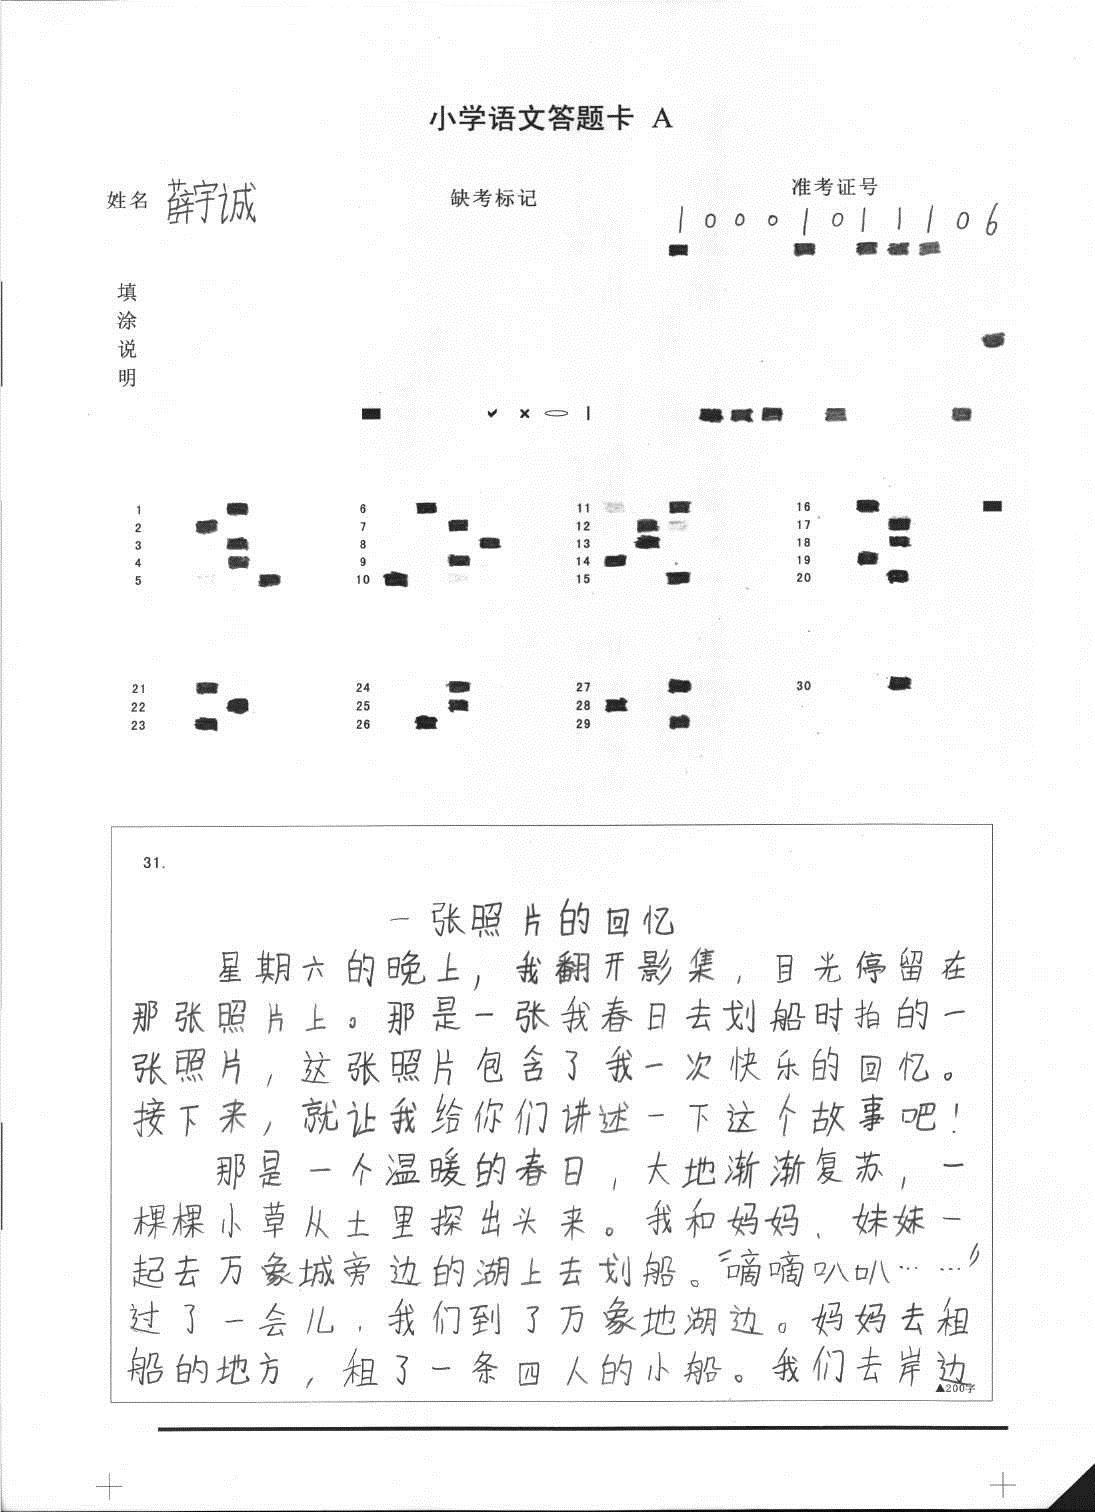 小学语文答题卡 A
姓名 薛宇诚
缺考标记
准考证号
1 0 0 0 1 0 1 1 1 0 6
填涂说明
1 6 11 16
2 7 12 17
3 8 13 18
4 9 14 19
5 10 15 20
21 24 27 30
22 25 28
23 26 29
31.
一张照片的回忆
星期六的晚上，我翻开影集，目光停留在
那张照片上。那是一张我春日去划船时拍的一
张照片，这张照片包含了我一次快乐的回忆。
接下来，就让我给你们讲述一下这个故事吧！
那是一个温暖的春日，大地渐渐复苏，一
棵棵小草从土里探出头来。我和妈妈、妹妹一
起去万象城旁边的湖上去划船。“嘀嘀叭叭……”
过了一会儿，我们到了万象地湖边。妈妈去租
船的地方，租了一条四人的小船。我们去岸边
▲200字